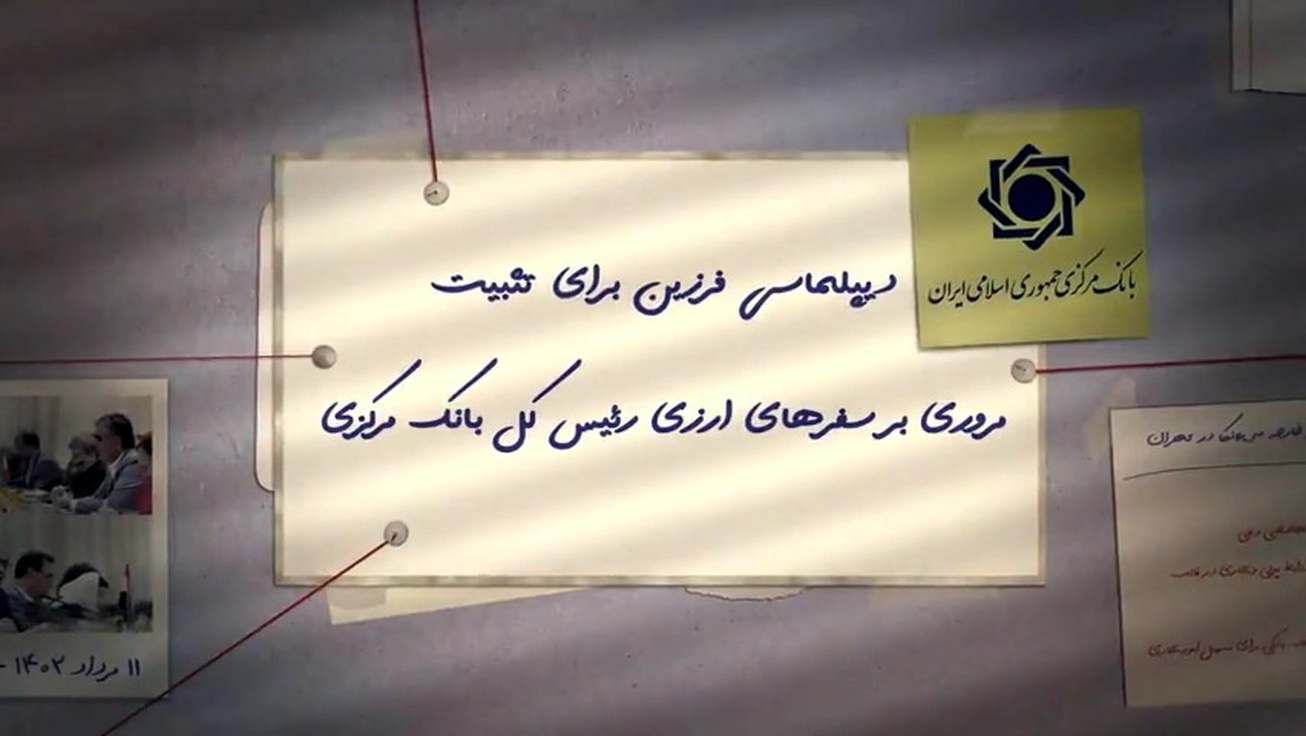 دیپلماسی فرزین برای تثبیت
مروری بر سفرهای ارزی رئیس کل بانک مرکزی
بانک مرکزی جمهوری اسلامی ایران
۱۱ مرداد ۱۴۰۲ -
در تهران